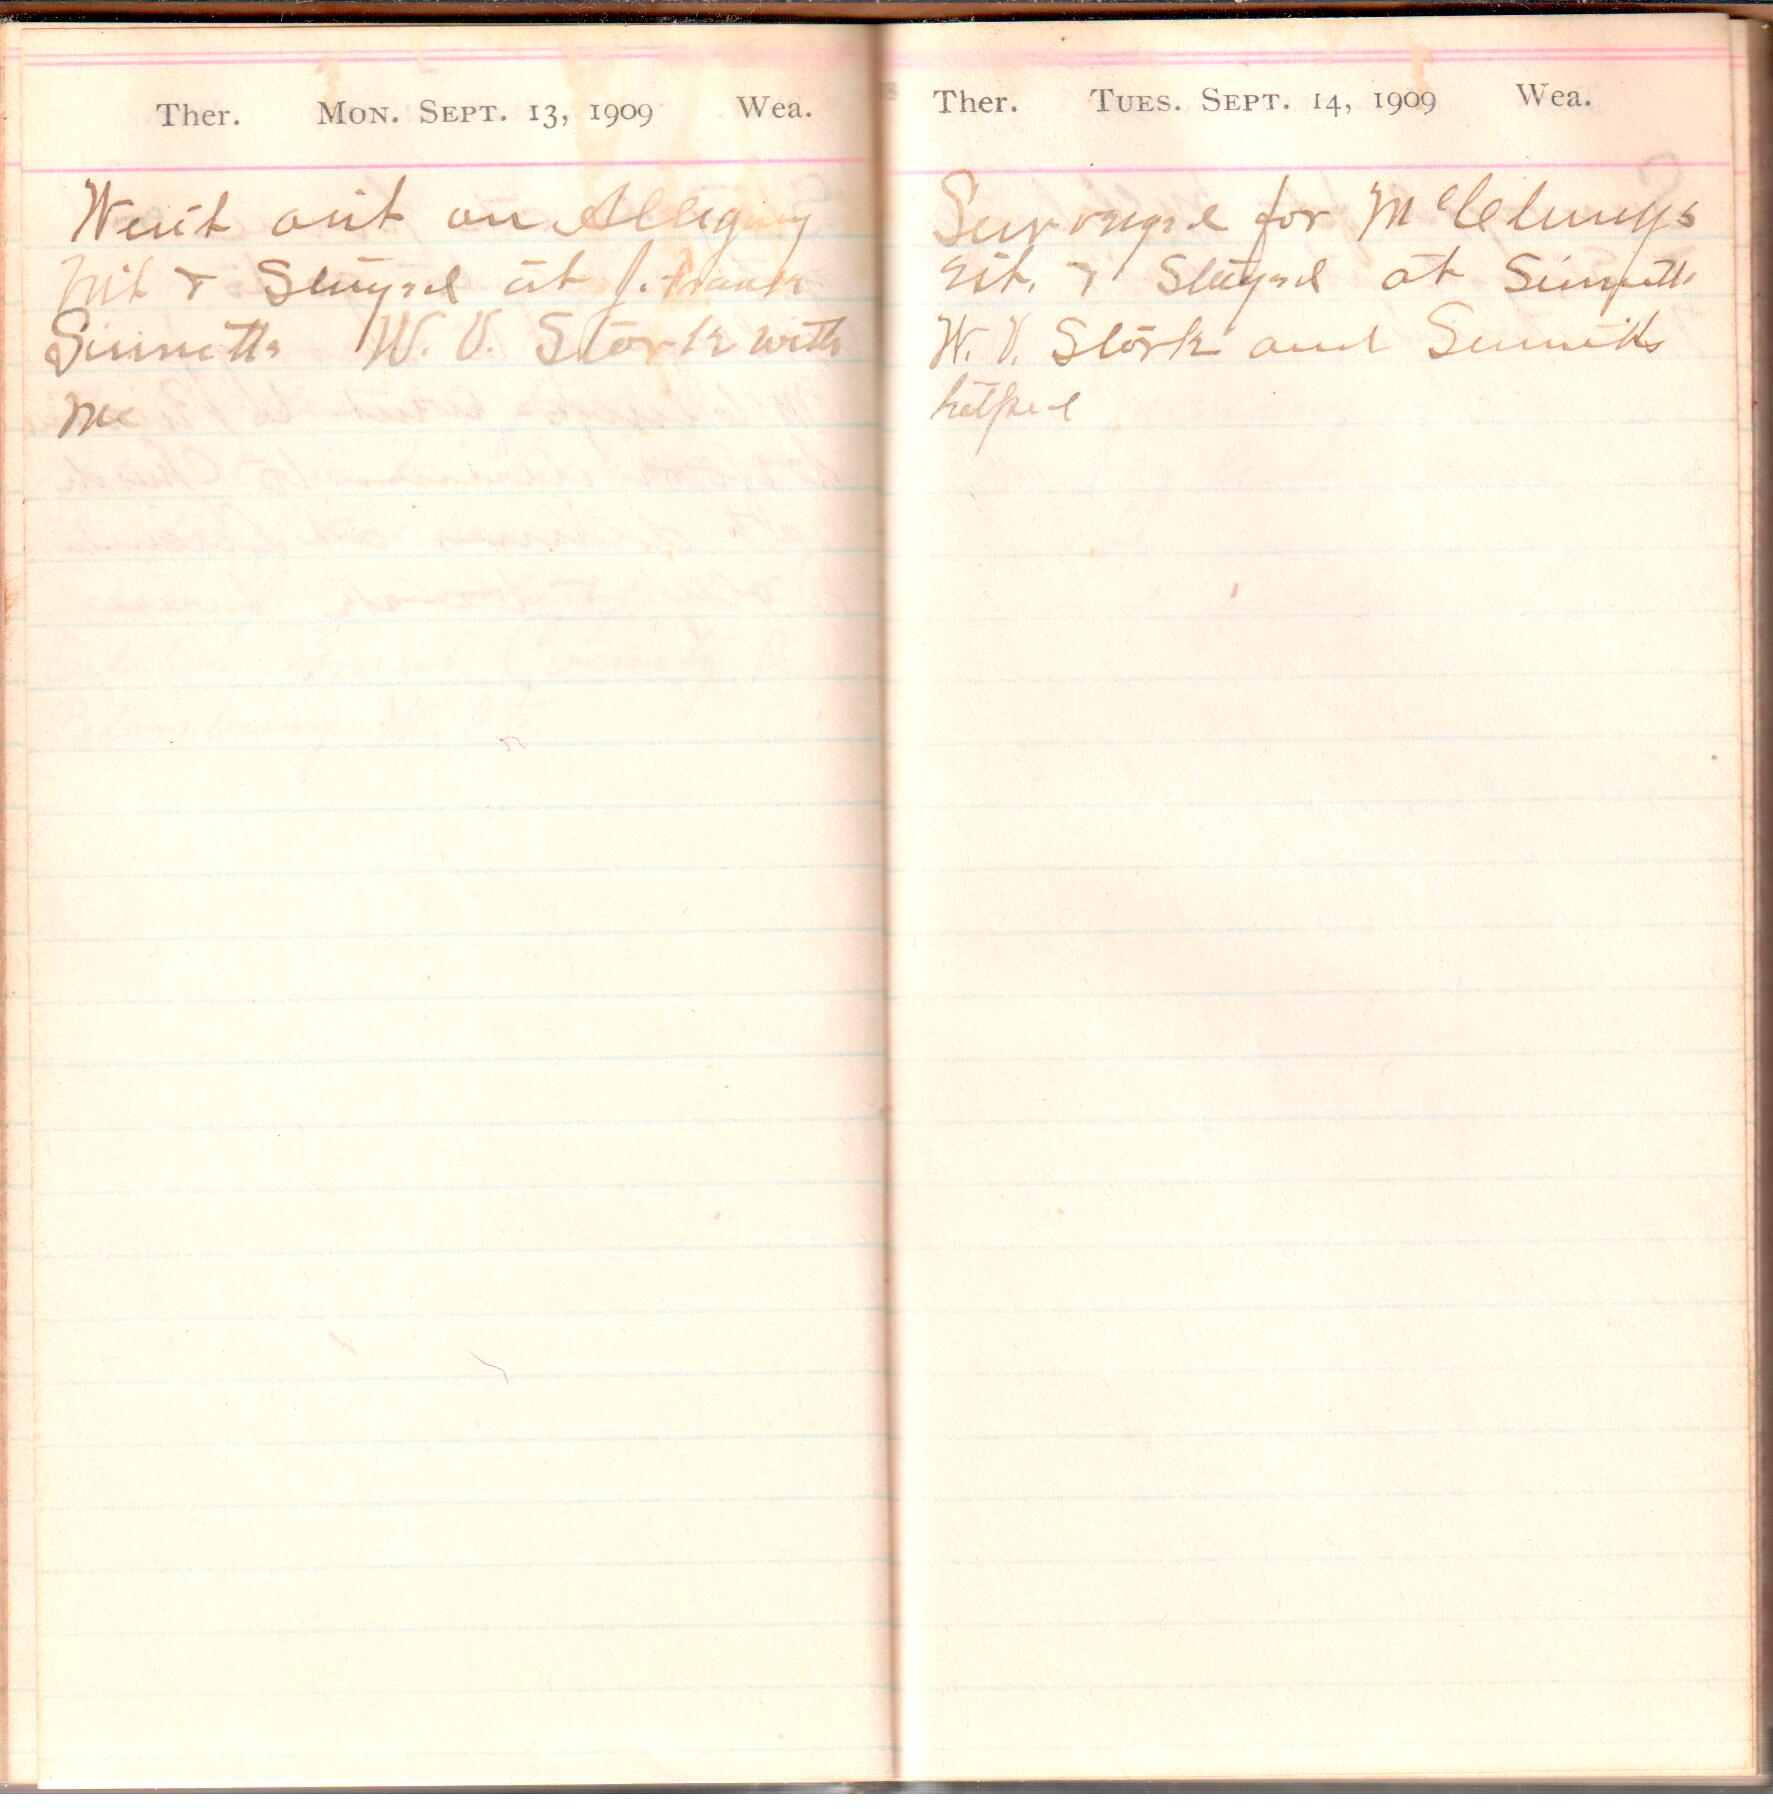 Ther. Mon. Sept. 13, 1909 Wea.
Went out on Allegany
Mt & Stayed at J. Frank
Sinnetts W. V. Stork with
me
Ther. Tues. Sept. 14, 1909 Wea.
Surveyed for McClungs
est. & Stayed at Sinnetts
W. V. Stork and Sinnetts
helped